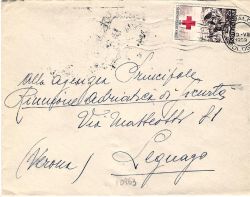 Alla Agenzia Principale
Riunione Adriatica di Sicurtà
Via Matteotti 81
Legnago
(Verona)